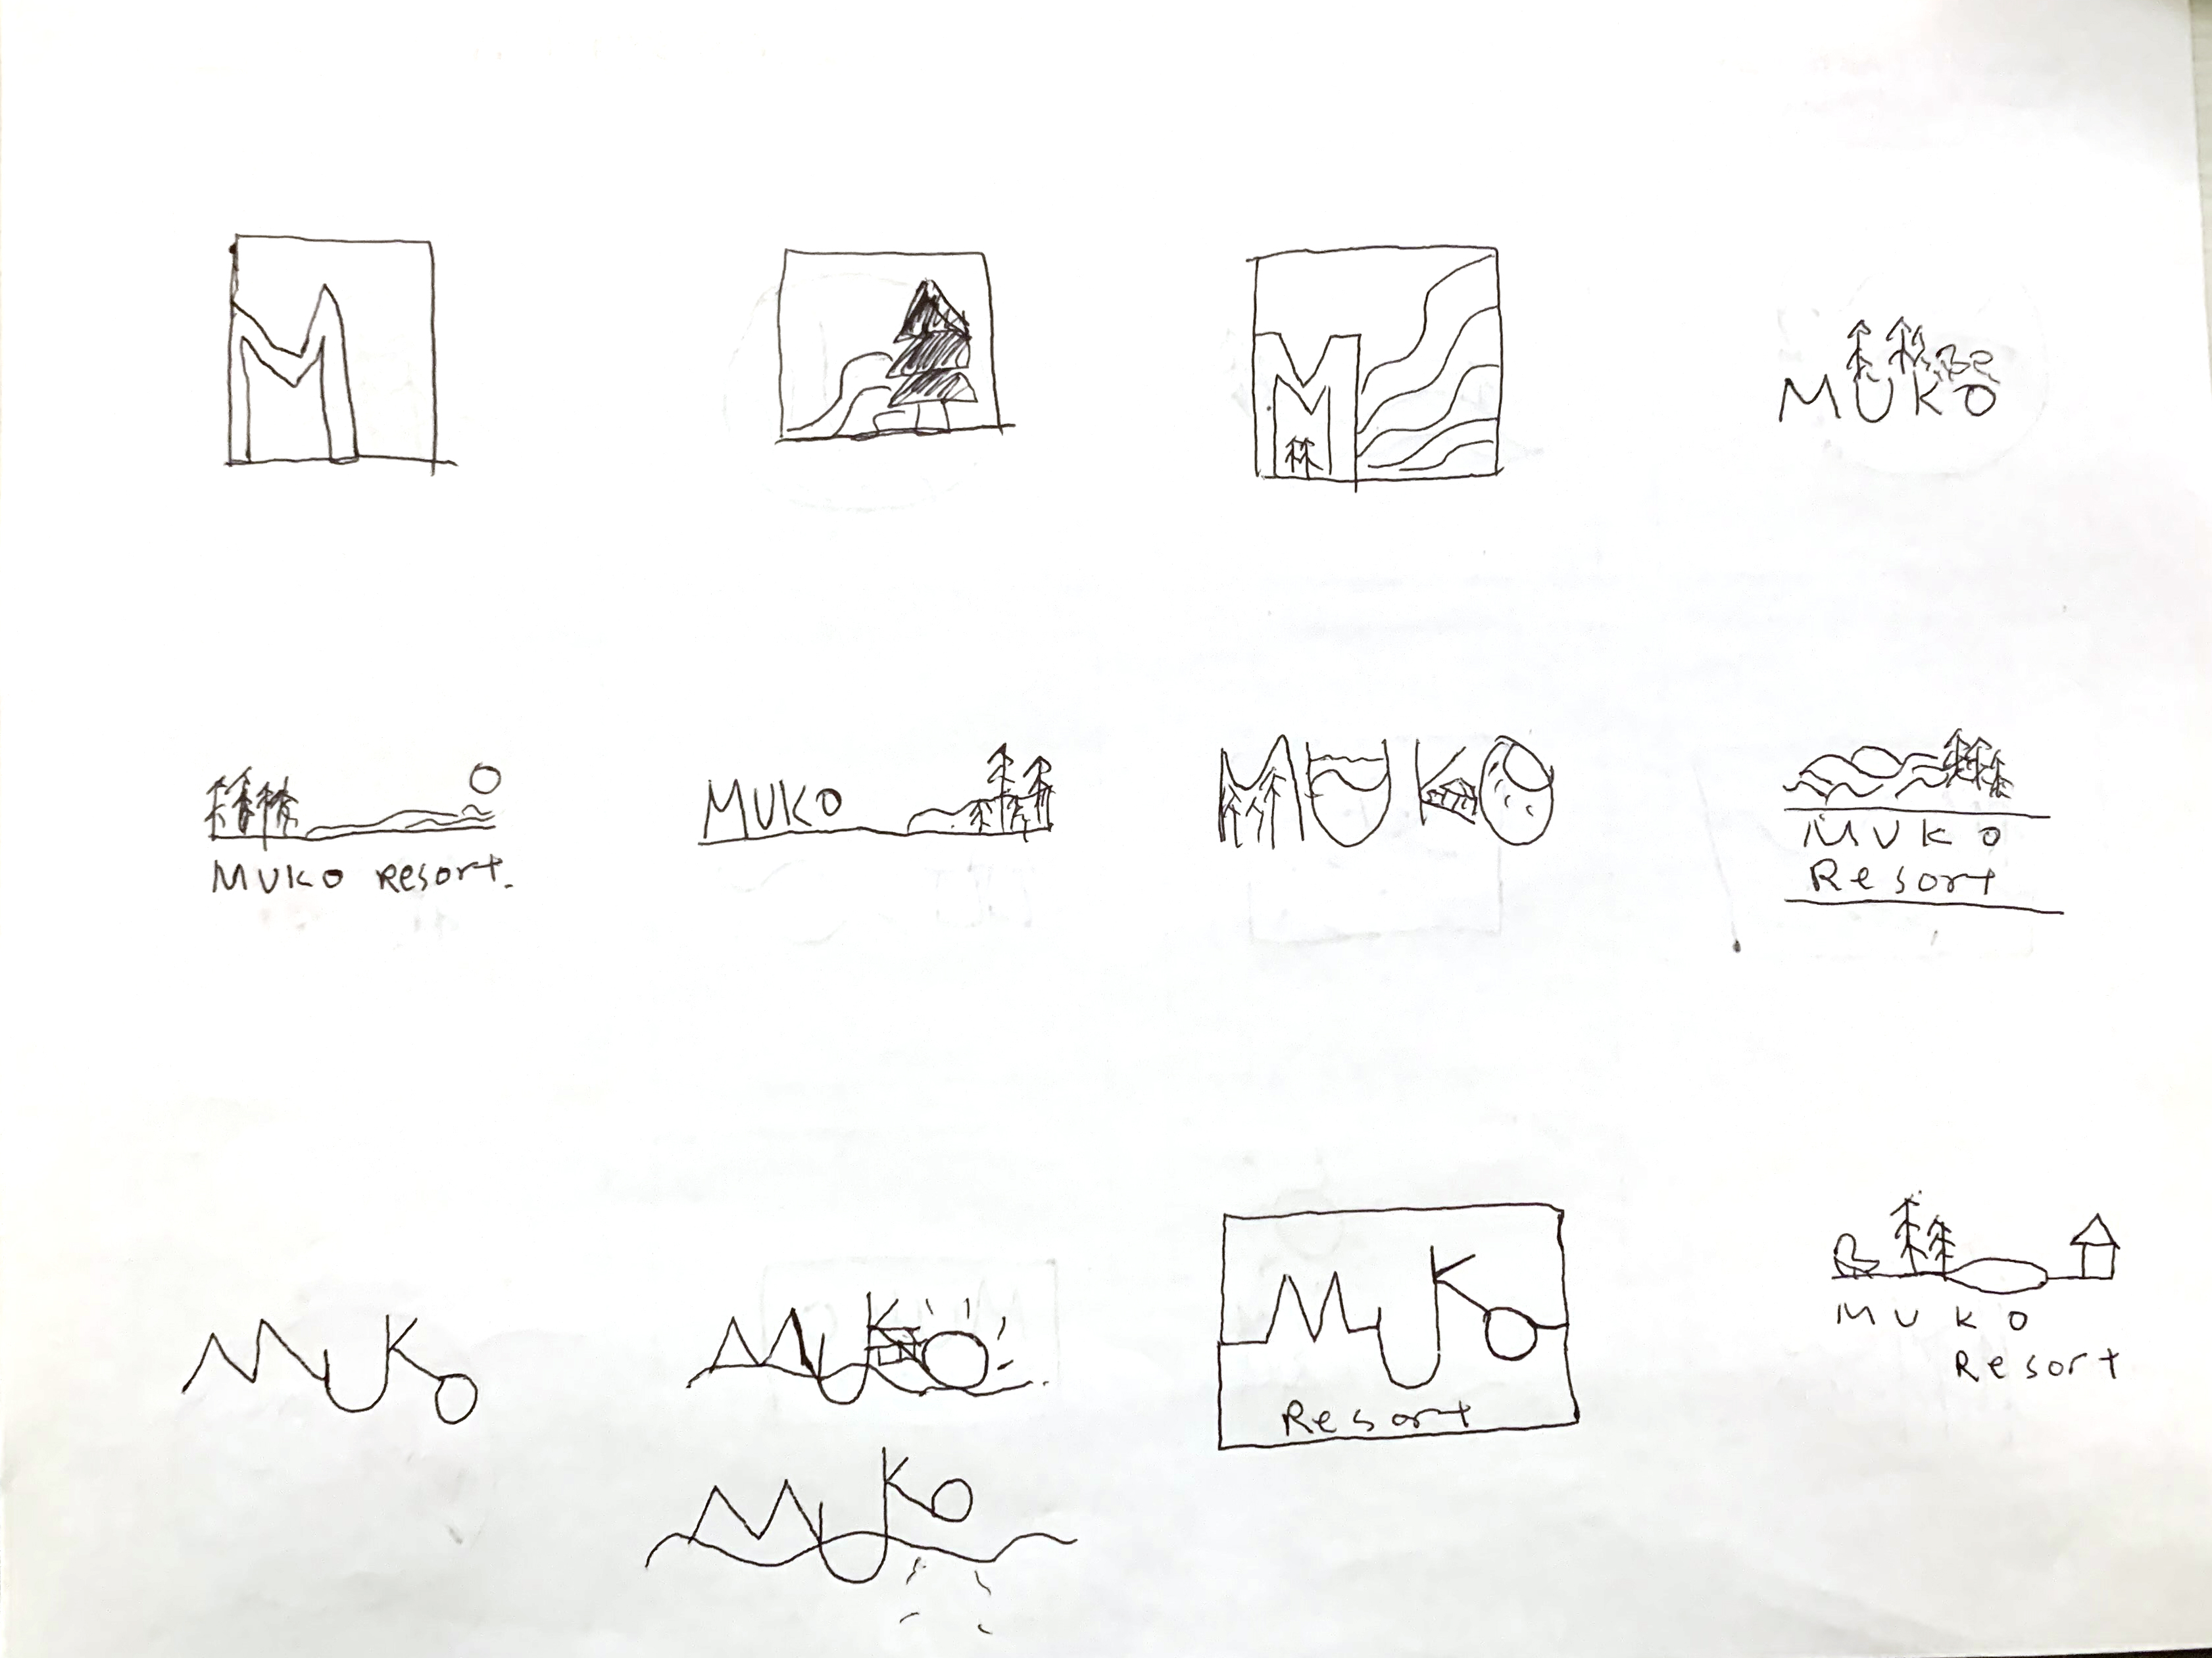 M
M
MUKO
MUKO Resort.
MUKO
MUKO
MUKO
Resort
MUKO
MUKO
MUKO
Resort
MUKO
Resort
MUKO